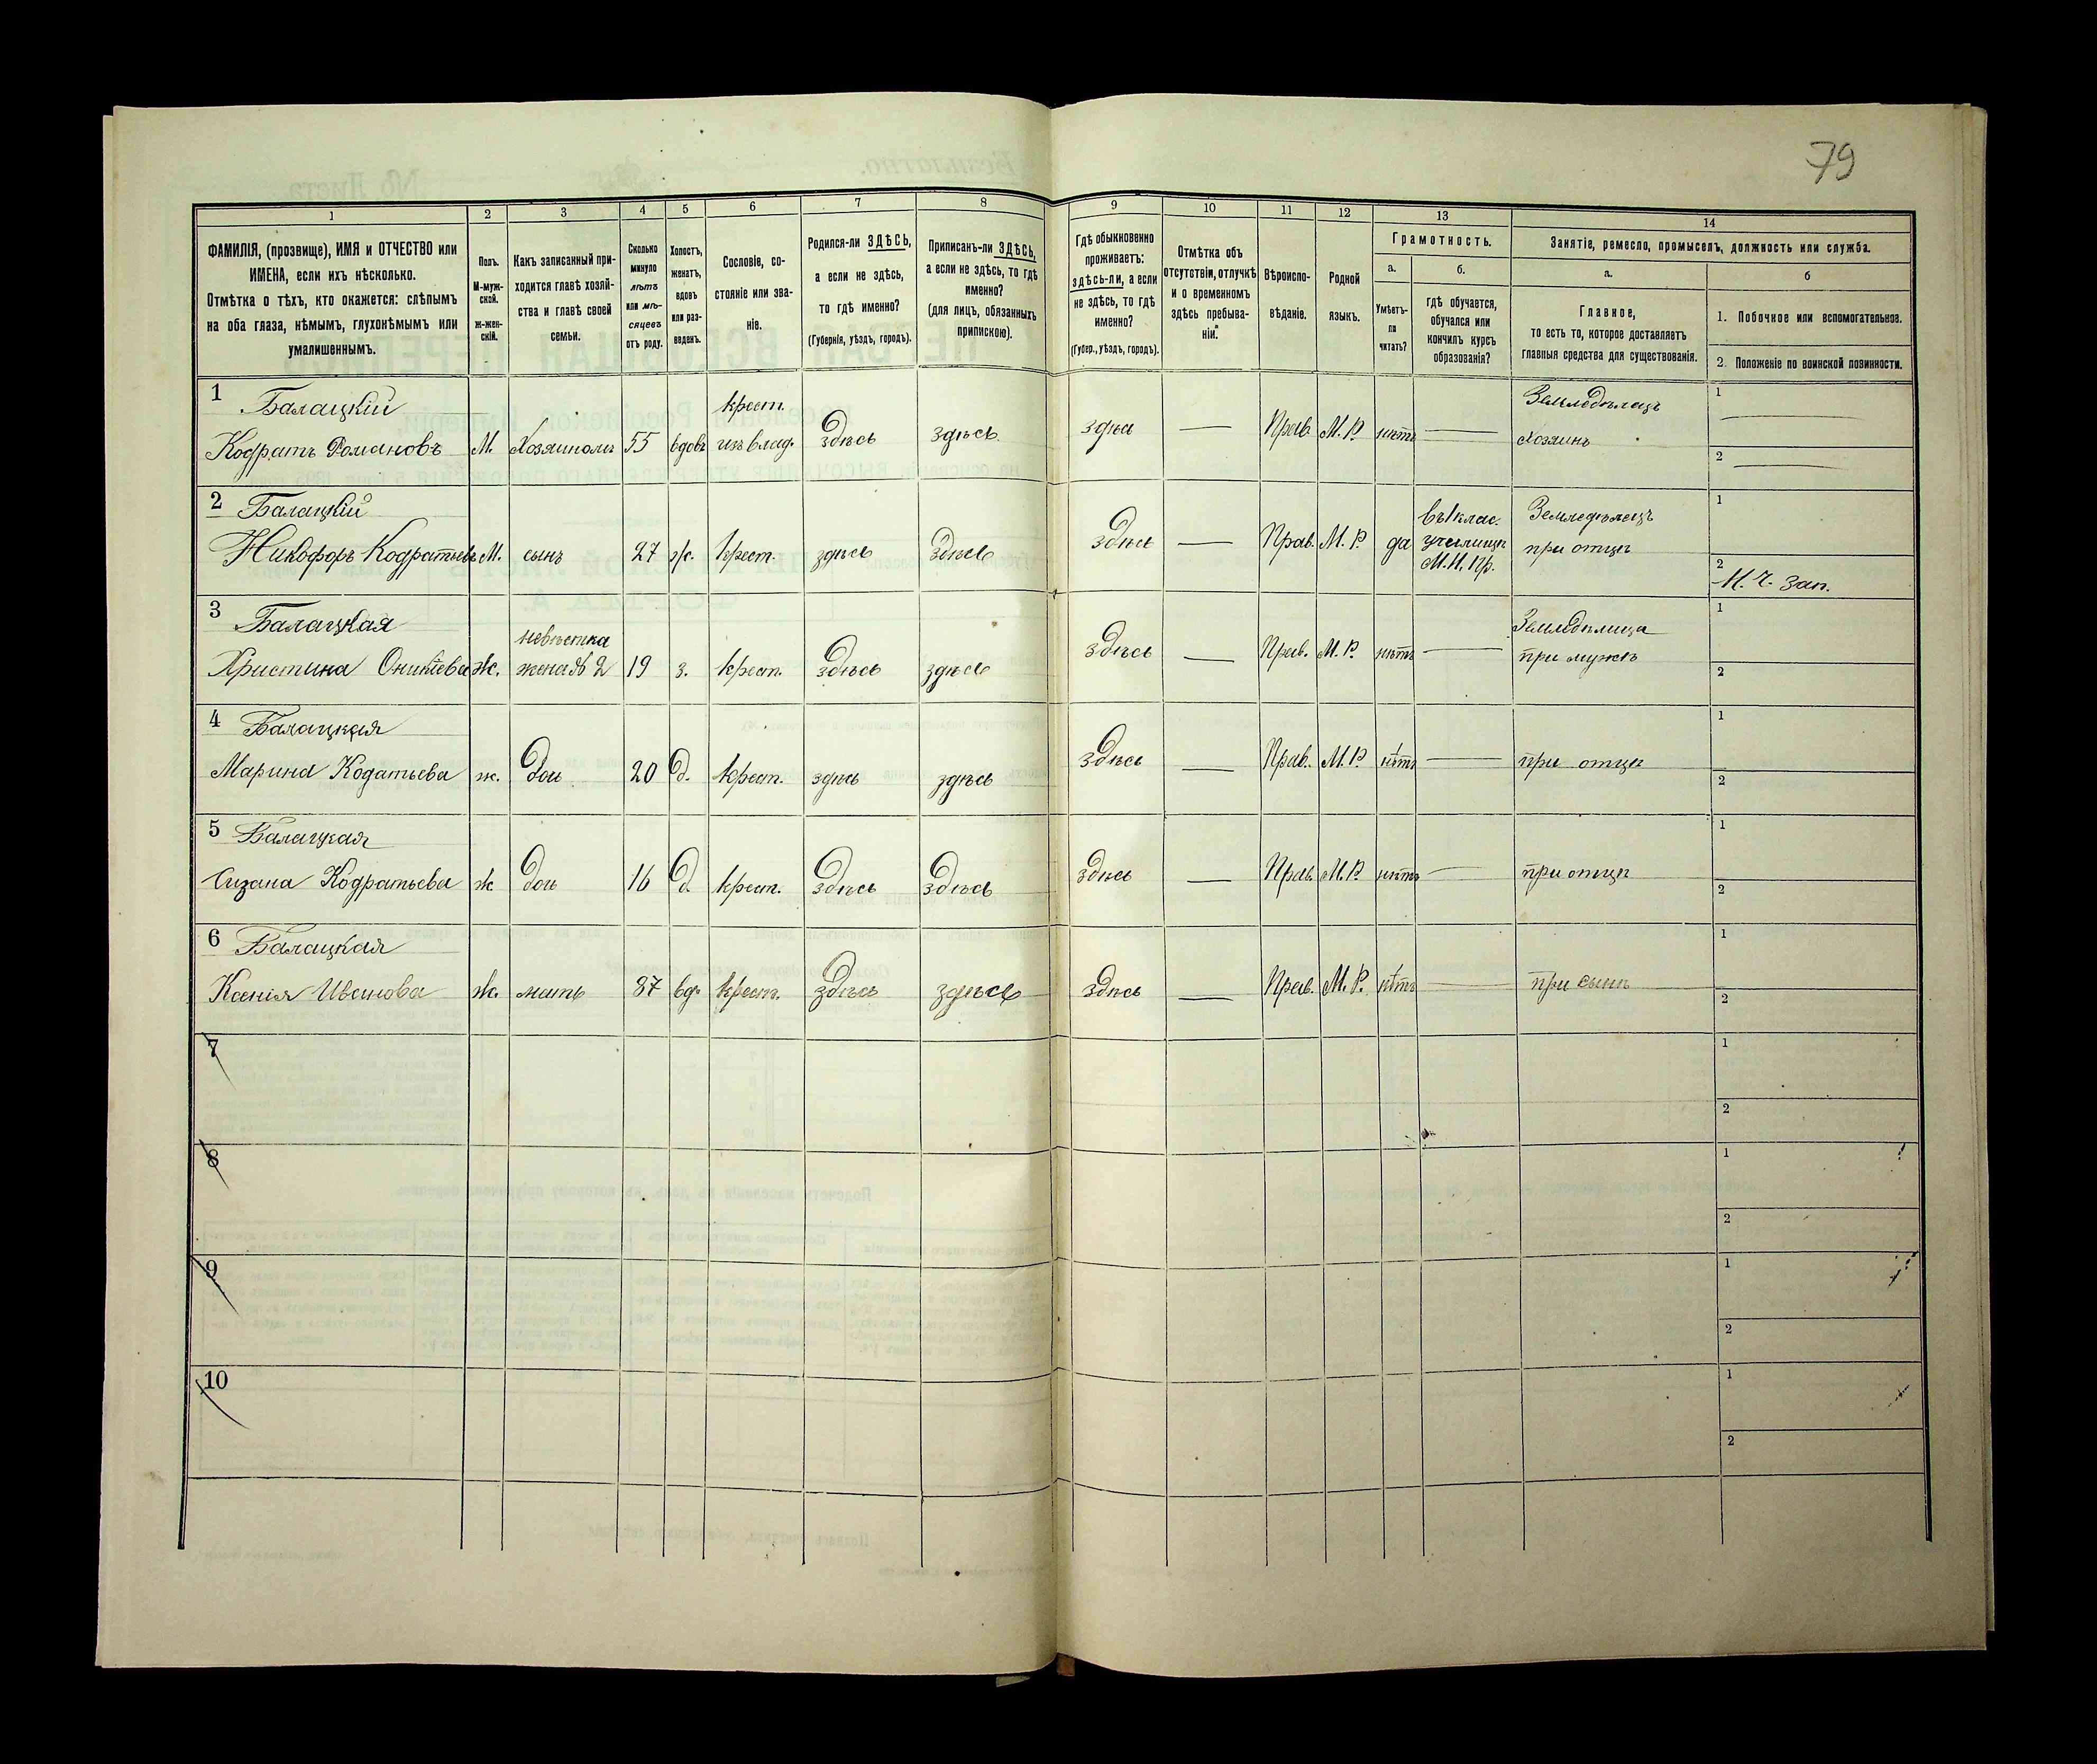 79
1 2 3 4 5 6 7 8 9 10 11 12 13 14
ФАМИЛІЯ, (прозвище), ИМЯ и ОТЧЕСТВО или
ИМЕНА, если ихъ нѣсколько.
Отмѣтка о тѣхъ, кто окажется: слѣпымъ
на оба глаза, нѣмымъ, глухонѣмымъ или
умалишеннымъ.
Полъ.
М-муж-
ской.
ж-жен-
скій.
Какъ записанный при-
ходится главѣ хозяй-
ства и главѣ своей
семьи.
Сколько
минуло
лѣтъ
или мѣ-
сяцевъ
отъ роду.
Холостъ,
женатъ,
вдовъ
или раз-
веденъ.
Сословіе, со-
стояніе или зва-
ніе.
Родился-ли ЗДѢСЬ,
а если не здѣсь,
то гдѣ именно?
(Губернія, уѣздъ, городъ).
Приписанъ-ли ЗДѢСЬ,
а если не здѣсь, то гдѣ
именно?
(для лицъ, обязанныхъ
припискою).
Гдѣ обыкновенно
проживаетъ:
здѣсь-ли, а если
не здѣсь, то гдѣ
именно?
(Губер., уѣздъ, городъ).
Отмѣтка объ
отсутствіи, отлучкѣ
и о временномъ
здѣсь пребыва-
ніи.
Вѣроиспо-
вѣданіе.
Родной
языкъ.
Грамотность.
а.
Умѣетъ-
ли
читать?
б.
гдѣ обучается,
обучался или
кончилъ курсъ
образованія?
Занятіе, ремесло, промыселъ, должность или служба.
а.
Главное,
то есть то, которое доставляетъ
главныя средства для существованія.
б
1. Побочное или вспомогательное.
2. Положеніе по воинской повинности.
1 Балацкій крест. Земледѣлецъ 1
Кодратъ Романовъ М. Хозяиномъ 55 вдовъ изъ влад. здѣсь здѣсь здѣсь — Прав. М.Р. нѣтъ — хозяинъ 2
2 Балацкій въ 1 клас. Земледѣлецъ 1
Никофоръ Кодратьевъ М. сынъ 27 ж. крест. здѣсь здѣсь здѣсь — Прав. М.Р. да училищѣ при отцѣ
М.Н.Пр. 2 Н.Ч. зап.
3 Балацкая невѣстка Земледѣлица 1
Христина Оникіева ж. жена № 2 19 з. крест. здѣсь здѣсь здѣсь — Прав. М.Р. нѣтъ — при мужѣ 2
4 Балацкая 1
Марина Кодатьева ж. дочь 20 д. крест. здѣсь здѣсь здѣсь — Прав. М.Р. нѣтъ — при отцѣ 2
5 Балацкая 1
Сизана Кодратьева ж дочь 16 д. крест. здѣсь здѣсь здѣсь — Прав. М.Р. нѣтъ — при отцѣ 2
6 Балацкая 1
Ксенія Иванова ж. мать 87 вд. крест. здѣсь здѣсь здѣсь — Прав. М.Р. нѣтъ — при сынѣ 2
7 1
2
8 1
2
9 1
2
10 1
2